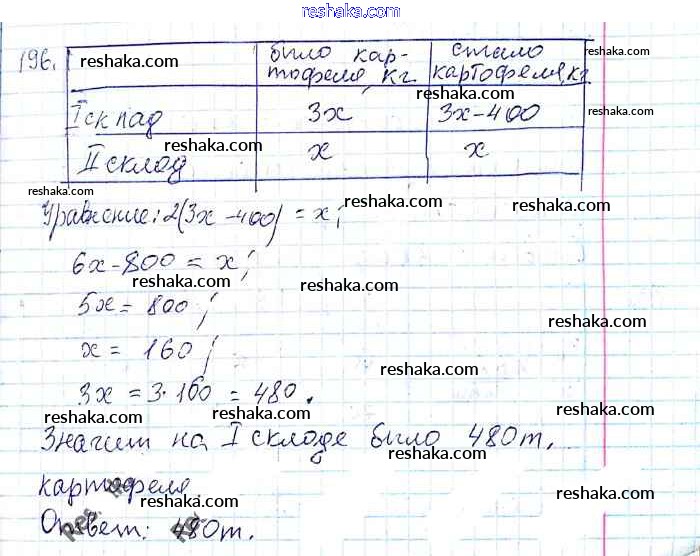 reshaka.com
196.
reshaka.com
было кар-
тофеля, кг.
стало
reshaka.com
картофеля, кг
I склад
3x
reshaka.com
3x-400
reshaka.com
II склад
x
x
reshaka.com
reshaka.com
reshaka.com
Уравнение: 2(3x-400) = x;
reshaka.com
reshaka.com
6x-800 = x;
reshaka.com
5x = 800;
reshaka.com
reshaka.com
x = 160;
reshaka.com
3x = 3·160 = 480.
reshaka.com
reshaka.com
Значит на I складе было 480т.
reshaka.com
картофеля
reshaka.com
reshaka.com
Ответ: 480т.
reshaka.com